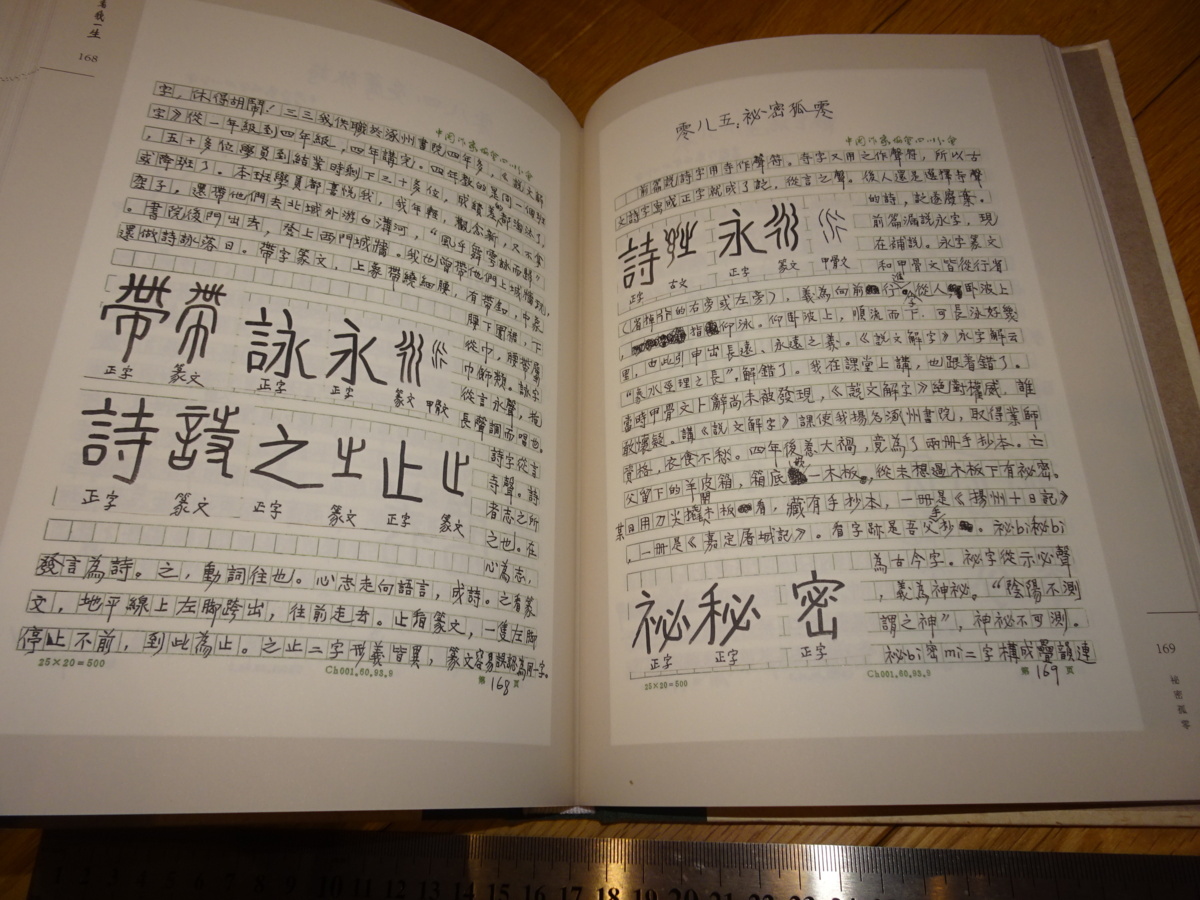 168
中国作家协会四川分会
字，休得胡鬧！三三我供職於涿州書院四年多，《說文解
字》從一年級到四年級，四年講完。四年教的是同一個班
，五十多位學員到結業時剩下三十多位，成績差的都淘汰了
或降班了。本班學員都喜悅我，我年輕，觀念新，又不拿
架子，還帶他們去北城外游白溝河，“風乎舞雩詠而歸”
。書院後門出去，登上西門城牆。我也曾帶他們上城懷古，
還做詩詠落日。帶字篆文，上象帶繞細腰，有帶扣，中象
腰下圍裙，下
從巾，腰帶屬
巾飾類。詠字
從言永聲，指
長聲調而唱也。
詩字從言
寺聲。詩
者志之所
之也。在
心為志，
帶 帶 詠 永
正字 篆文 正字 正字 篆文 甲骨文
詩 詩 之 止
正字 篆文 正字 篆文 正字 篆文
發言為詩。之，動詞往也。心志走向語言，成詩。之看篆
文，地平線上左脚跨出，往前走去。止看篆文，一隻左脚
停止不前，到此為止。之止二字形義皆異，篆文容易誤認為同一字。
25×20=500
Ch001.60.93.9
第168页
零八五：祕密孤零
中国作家协会四川分会
前篇說詩字用寺作聲符。寺字又用之作聲符，所以古
文詩字寫成正字就成了訨，從言之聲。後人還是選擇寺聲
的詩，訨遂廢棄。
前篇漏說永字，現
在補說。永字篆文
和甲骨文皆從行省
詩 永
正字 古文 正字 篆文 甲骨文
（省掉行的右旁或左旁），義為向前行進，從人字卧波上
，指仰泳。仰卧波上，順流而下，可長泳好幾
里，由此引申出長遠、永遠之義。《說文解字》永字解云
“象水巠理之長”，解錯了。我在課堂上講，也跟着錯了。
當時甲骨文卜辭尚未被發現，《說文解字》絕對權威，誰
敢懷疑。講《說文解字》課使我揚名涿州書院，取得業師
資格，衣食不愁。四年後惹大禍，竟為了兩册手抄本。亡
父留下的羊皮箱，箱底嵌一木板，從未想過木板下有祕密。
某日用刀尖撬開木板看，藏有手抄本，一册是《揚州十日記》
，一册是《嘉定屠城記》。看字跡是吾父手抄。祕bi秘bi
為古今字。祕字從示必聲
，義為神祕。“陰陽不測
謂之神”，神祕不可測。
祕bi密mi二字構成疊韻連
祕 秘 密
正字 正字 正字
25×20=500
Ch001.60.93.9
第169页
169
祕密孤零